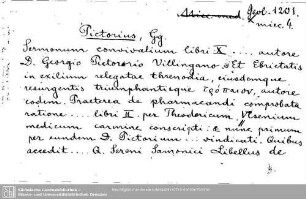 Geol. 1201.
misc. 4
Pictorius, Gg.
Sermonum convivalium libri X .... autore
D. Georgio Pictorio Villingano. Et Ebrietatis
in exilium relegatae threnodia, eiusdemque
resurgentis triumphantisque τρόπαιον, autore
eodem. Praeterea de pharmacandi comprobata
ratione .... libri II per Theodoricum Ulsenium
medicum carmine conscripti: & nunc primum
per eundem D. Pictorium ... vindicati. Quibus
accedit ... Q. Sereni Samonici Libellus de